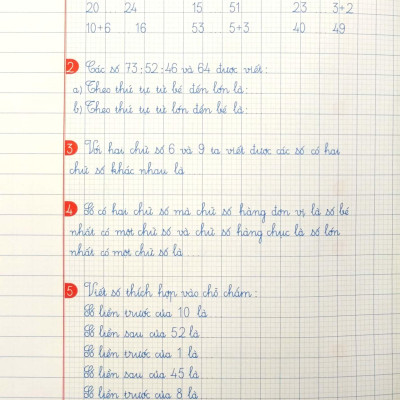 20 24 15 51 23 3+2
10+6 16 53 5+3 40 49
2 Các số 73; 52; 46 và 64 được viết:
a) Theo thứ tự từ bé đến lớn là:
b) Theo thứ tự từ lớn đến bé là:
3 Với hai chữ số 6 và 9 ta viết được các số có hai
chữ số khác nhau là
4 Số có hai chữ số mà chữ số hàng đơn vị là số bé
nhất có một chữ số và chữ số hàng chục là số lớn
nhất có một chữ số là
5 Viết số thích hợp vào chỗ chấm:
Số liền trước của 10 là
Số liền sau của 52 là
Số liền trước của 1 là
Số liền sau của 45 là
Số liền trước của 8 là